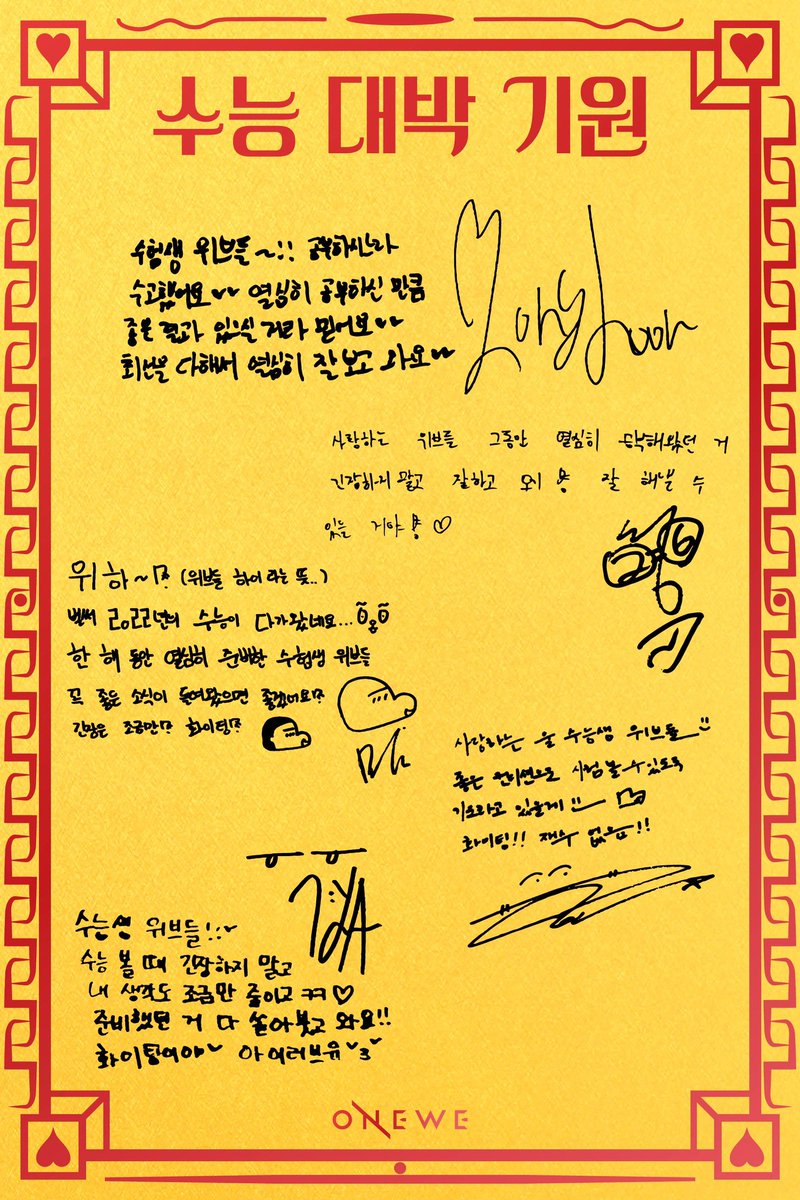 수능 대박 기원
수험생 위브들~!! 공부하시느라
수고했어요~~ 열심히 공부하신 만큼
좋은 결과 있으실 거라 믿어요~~
최선을 다해서 열심히 잘 보고 와요~~
YongHoon
사랑하는 위브들 그동안 열심히 공부해왔던 거
긴장하지 말고 잘하고 오시용 잘 해낼 수
있을 거야용♡
위하~ (위브들 하이 라는 뜻..)
벌써 2022년의 수능이 다가왔네요...
한 해 동안 열심히 준비한 수험생 위브들
꼭 좋은 소식이 들려왔으면 좋겠어요
긴장은 조금만 화이팅
사랑하는 울 수능생 위브들
좋은 컨디션으로 시험 볼 수 있도록
기도하고 있을게
화이팅!! 재수 없음!!
수능생 위브들!!
수능 볼 때 긴장하지 말고
내 생각도 조금만 줄이고 ㅋㅋ♡
준비했던 거 다 쏟아붓고 와요!!
화이팅이야 아이러브유
ONEWE